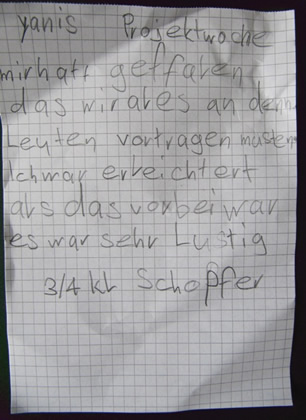 yanis Projektwoche
mirhatt geffalen
das wirales an denn
Leuten vortragen musten
Ichwar erleichtert
als das vorbei war
es war sehr Lustig
3/4 kl Schopfer